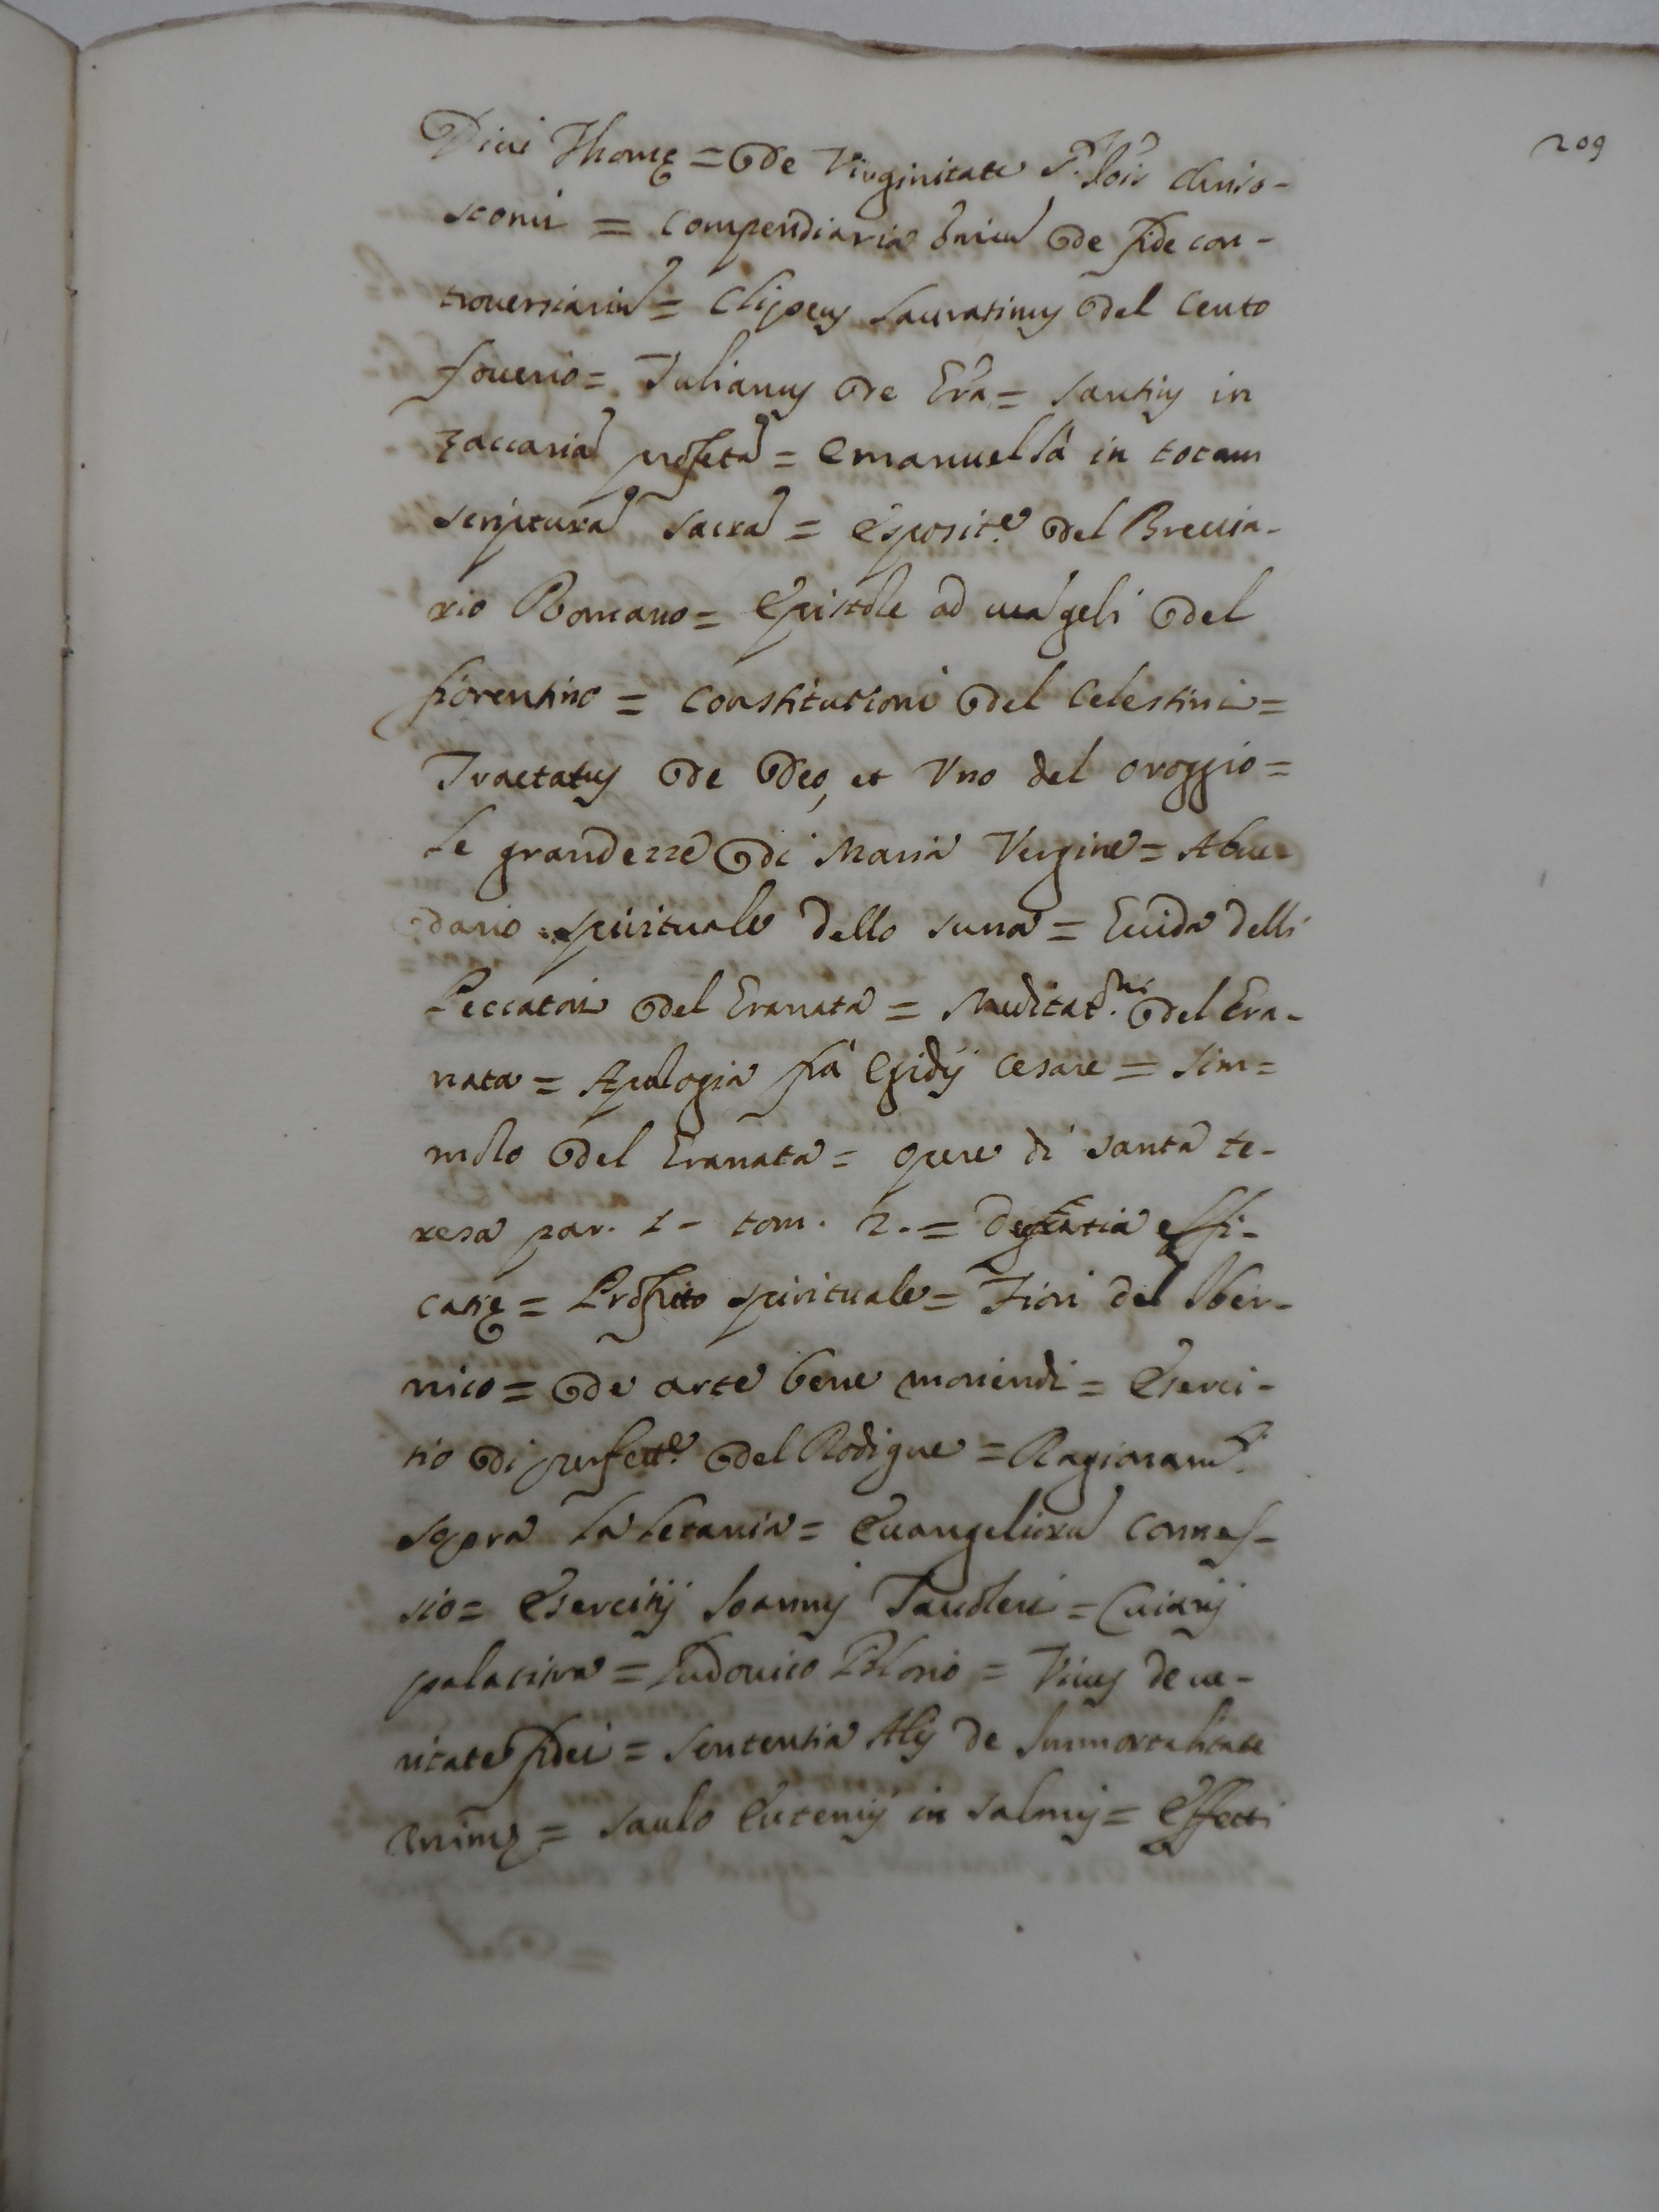 209
Divi Thomę = de Virginitate S. Iõis Chriso-
stomi = compendiaria õniũ de fide con-
troversiariũ = Clipeus Lauratinus del Cento
foverio = Iulianus de Grã = Santius in
Zaccariã profetã = Emanuel Sà in totam
scripturã sacrã = Esposit.e del Brevia-
rio Romano = Epistole ad vuãgeli del
fiorentino = Constitutioni del Celestini =
Tractatus de Deo, et Uno del oroggio =
Le grandezze di Maria Vergine = Abue-
dario spirituale dello suna = Guida delli
Peccatori del Granata = Meditat.ni del Gra-
nata = Apologia frà Egidij Cesare = Sim-
molo del Granata = opere di santa te-
resa par. 1 - tom. 2. = De gratia effi-
catię = Profitto spirituale = Fiori del Iber-
nico = de arte bene moriendi = Eserci-
tio di perfett.e del Rodigue = Ragionam.ti
sopra la Letania = Evangeliorũ connes-
sio = Esercitij Ioannis Taudleri =
palatina = Ludovico Blosio = Vives de ve-
ritate fidei = sententia Alij de Immortalitate
Animę = Saulo in salmis = Effetti